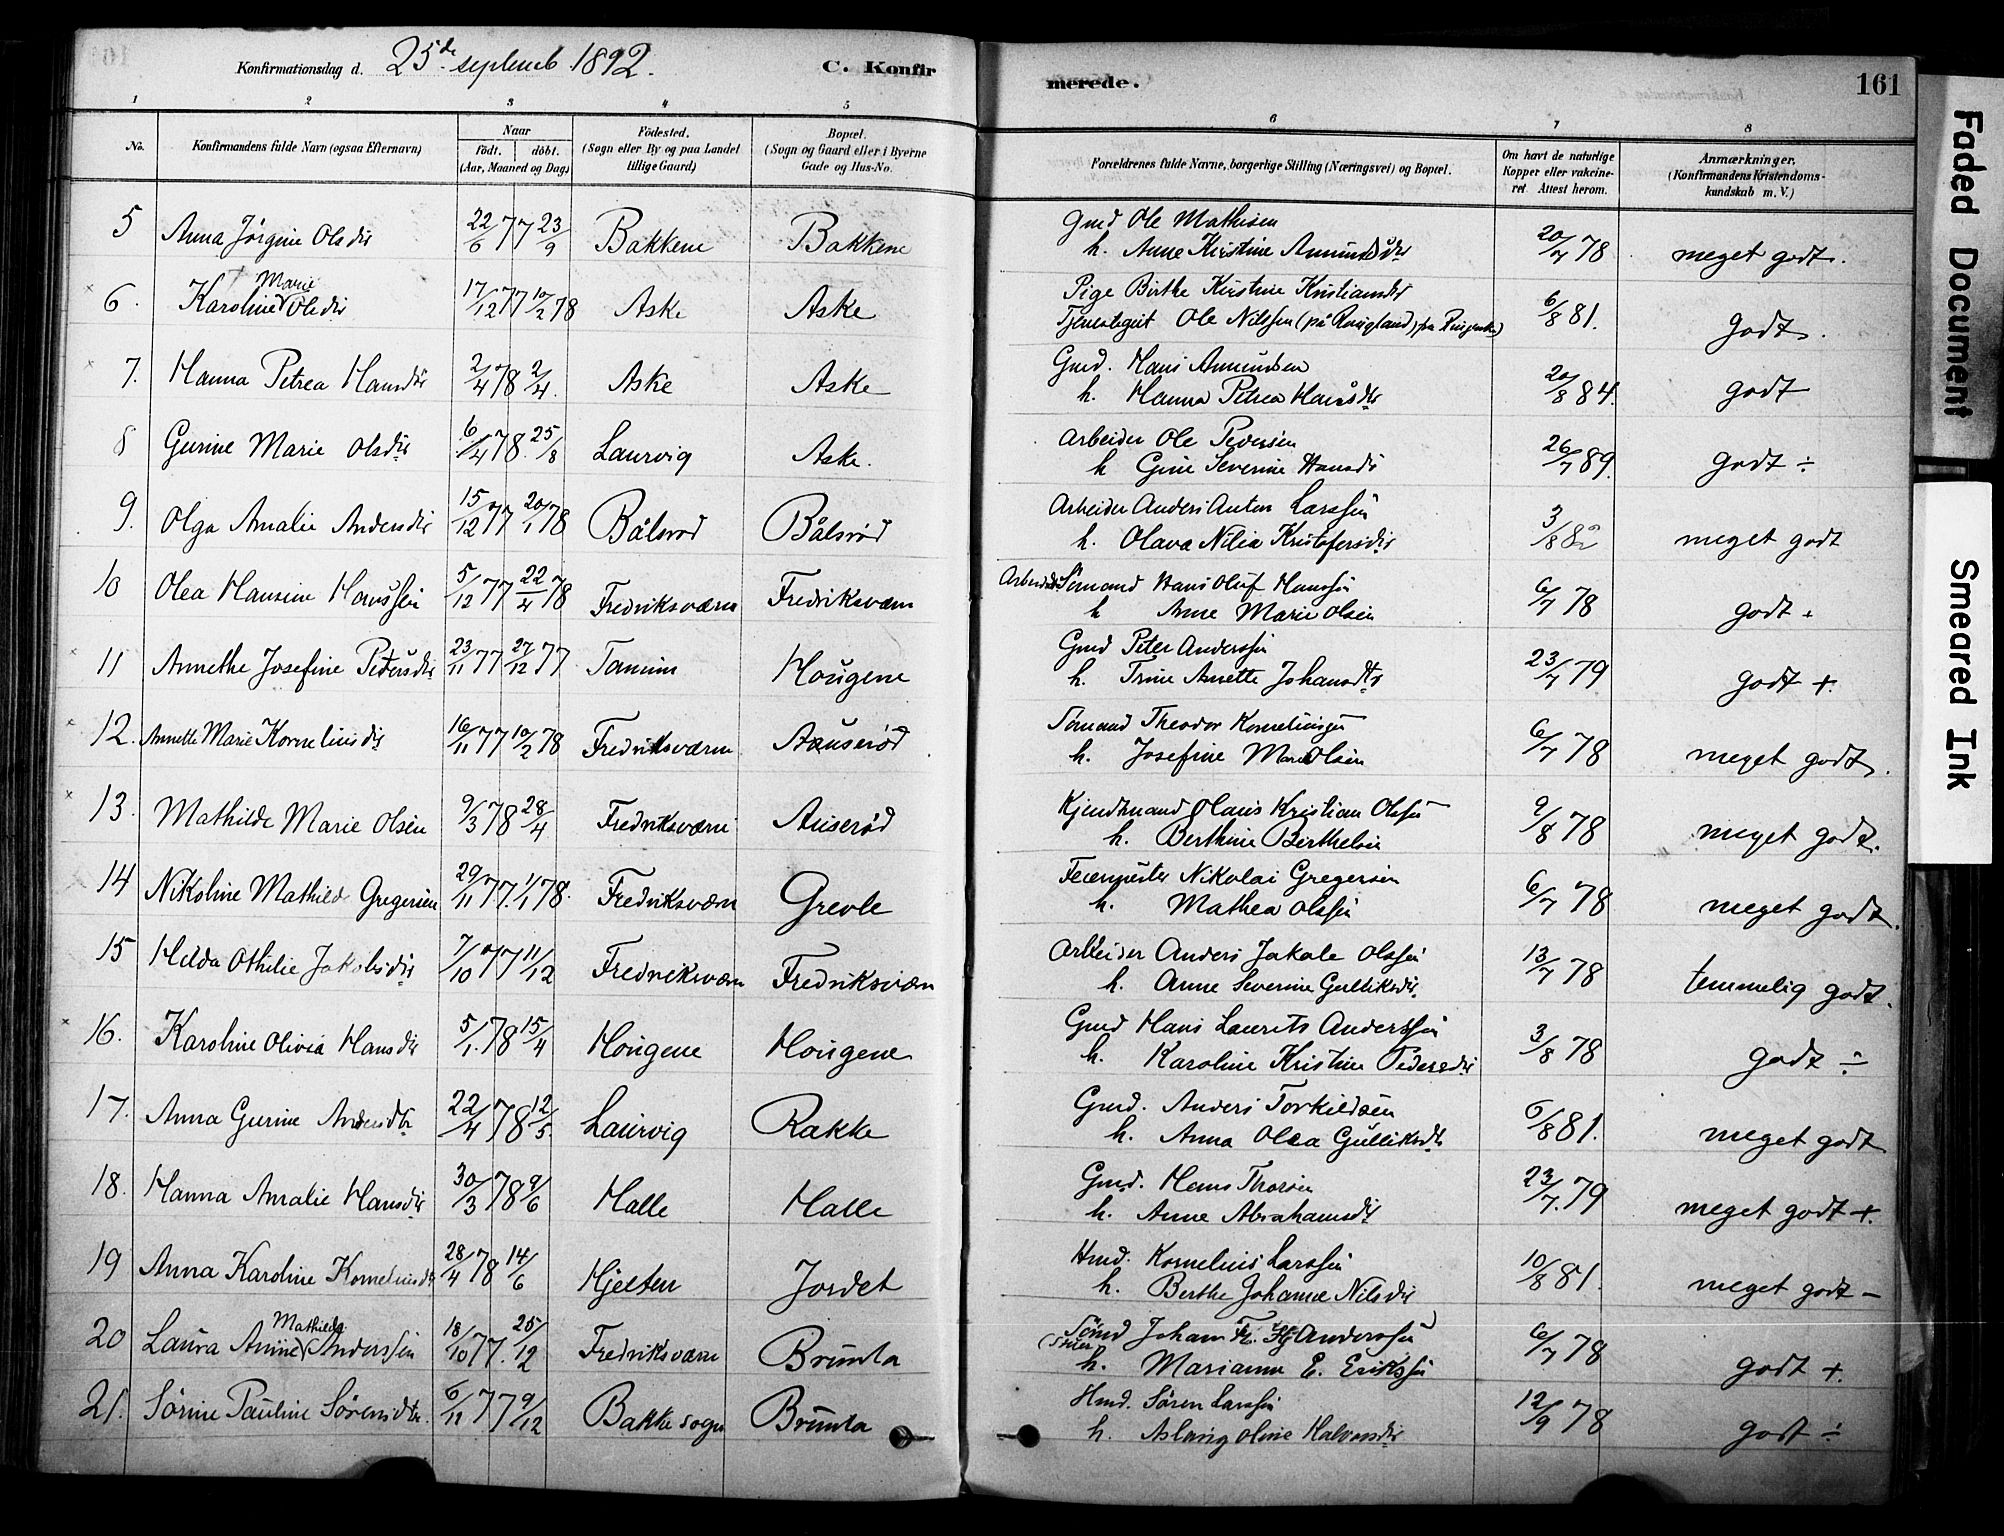 Konfirmationsdag d. 25de septemb 1892. C. Konfir
merede. 161
1 2 3 4 5 6 7 8
No. Konfirmandens fulde Navn (ogsaa Efternavn) Naar Födt. döbt. (Aar, Maaned og Dag) Födested. (Sogn eller By og paa Landet tillige Gaard) Bopæl. (Sogn og Gaard eller i Byerne Gade og Hus-No.
Forældrenes fulde Navne, borgerlige Stilling (Næringsvei) og Bopæl. Om havt de naturlige Kopper eller vakcineret Attest herom. Anmærkninger, (Konfirmandens Kristendomskundskab m. V.)
5 Anna Jörgine Olsdtr 22/6 77 23/9 Bakkene Bakkene Gmd Ole Mathisen 20/7 78 meget godt.
h. Anne Kirstine Amundsdtr
6. Karoline Marie Olsdtr 17/12 77 10/2 78 Aske Aske Pige Birthe Kirstine Kristiansdtr 6/8 81. godt.
Tjenestegut Ole Nilssen
7. Hanna Petrea Hansdtr 2/4 78 2/4. Aske Aske Gmd. Hans Amundsen 20/8 84. godt
h. Hanna Petrea Hansdtr
8 Gurine Marie Olsdtr 6/4 78. 25/8 Laurvig Aske. Arbeider Ole Pedersen 26/7 89. godt ÷
h Gine Severine Hansdtr
9. Olga Amalie Andersdtr 15/12 77 20/1 78 Bålsrød Bålsrød Arbeider Anders Anton Larssen 3/8 82 meget godt
h. Olava Nilia Kristofersdtr
10 Olea Hansine Hanssen 5/12 77 22/4 78 Fredriksværn Fredriksværn Arbeider Sömand Hans Oluf Hanssen 6/7 78 godt +
h Anne Marie Olsen
11 Annethe Josefine Petersdtr 23/11 77 27/12 77 Tanum Hougene Gmd Peter Anderssen 23/7 79 godt +.
h. Trine Anette Johansdtr
12. Annette Marie Korneliusdtr 16/11 77 10/2 78 Fredriksværn Auserød Sömand Theodor Korneliussen 6/7 78 meget godt.
h. Josefine Marie Olsen
13. Mathilde Marie Olsen 9/3 78 28/4 Fredriksværn Auserød Kjendtmand Olaus Kristian Olssen 9/8 78 meget godt.
h. Berthine Berthelsen
14 Nikoline Mathilde Gregersen 29/11 77. 1/1 78. Fredriksværn Grevle Nikolai Gregersen 6/7 78 meget godt.
h. Mathea Olssen
15 Hilda Othilie Jakobsdtr 7/10 77 11/12 Fredriksværn Fredriksværn Arbeider Anders Jakole Olssen 13/7 78 temmelig godt.
h. Anne Severine Gulliksdtr.
16. Karoline Olivia Hansdtr 5/1. 78 15/4 Hougene Hougene Gmd Hans Laurits Anderssen 3/8 78 godt ÷
h. Karoline Kristine Pedersdtr
17. Anna Gurine Andersdtr 22/4 78 12/5. Laurvig Rakke Gmd. Anders Torkildsen 6/8 81. meget godt
h. Anna Olea Gulliksdtr
18. Hanna Amalie Hansdtr 30/3 78 9/6 Halle Halle Gmd. Hans Thorsen 23/7. 79 meget godt +.
h. Anne Abrahamsdtr
19 Anna Karoline Korneliusdtr 28/4 78 14/6 Hjelten Jordet Hmd. Kornelius Larssen 10/8 81. meget godt -
h. Berthe Johanne Nilsdtr
20 Laura Anine Mathilde Anderssen 18/10 77. 25/12 Fredriksværn Brunla Sömd Johan Fr. Anderssen 6/7 78 godt +
h. Marianne E. Erikssen
21. Sörine Pauline Sörensdtr. 6/11 77 9/12 Bakke sogn Brunla Hmd. Sören Larssen 12/9 78 godt ÷
h. Aslaug Oline Halvorsdtr
Faded Document
Smeared Ink